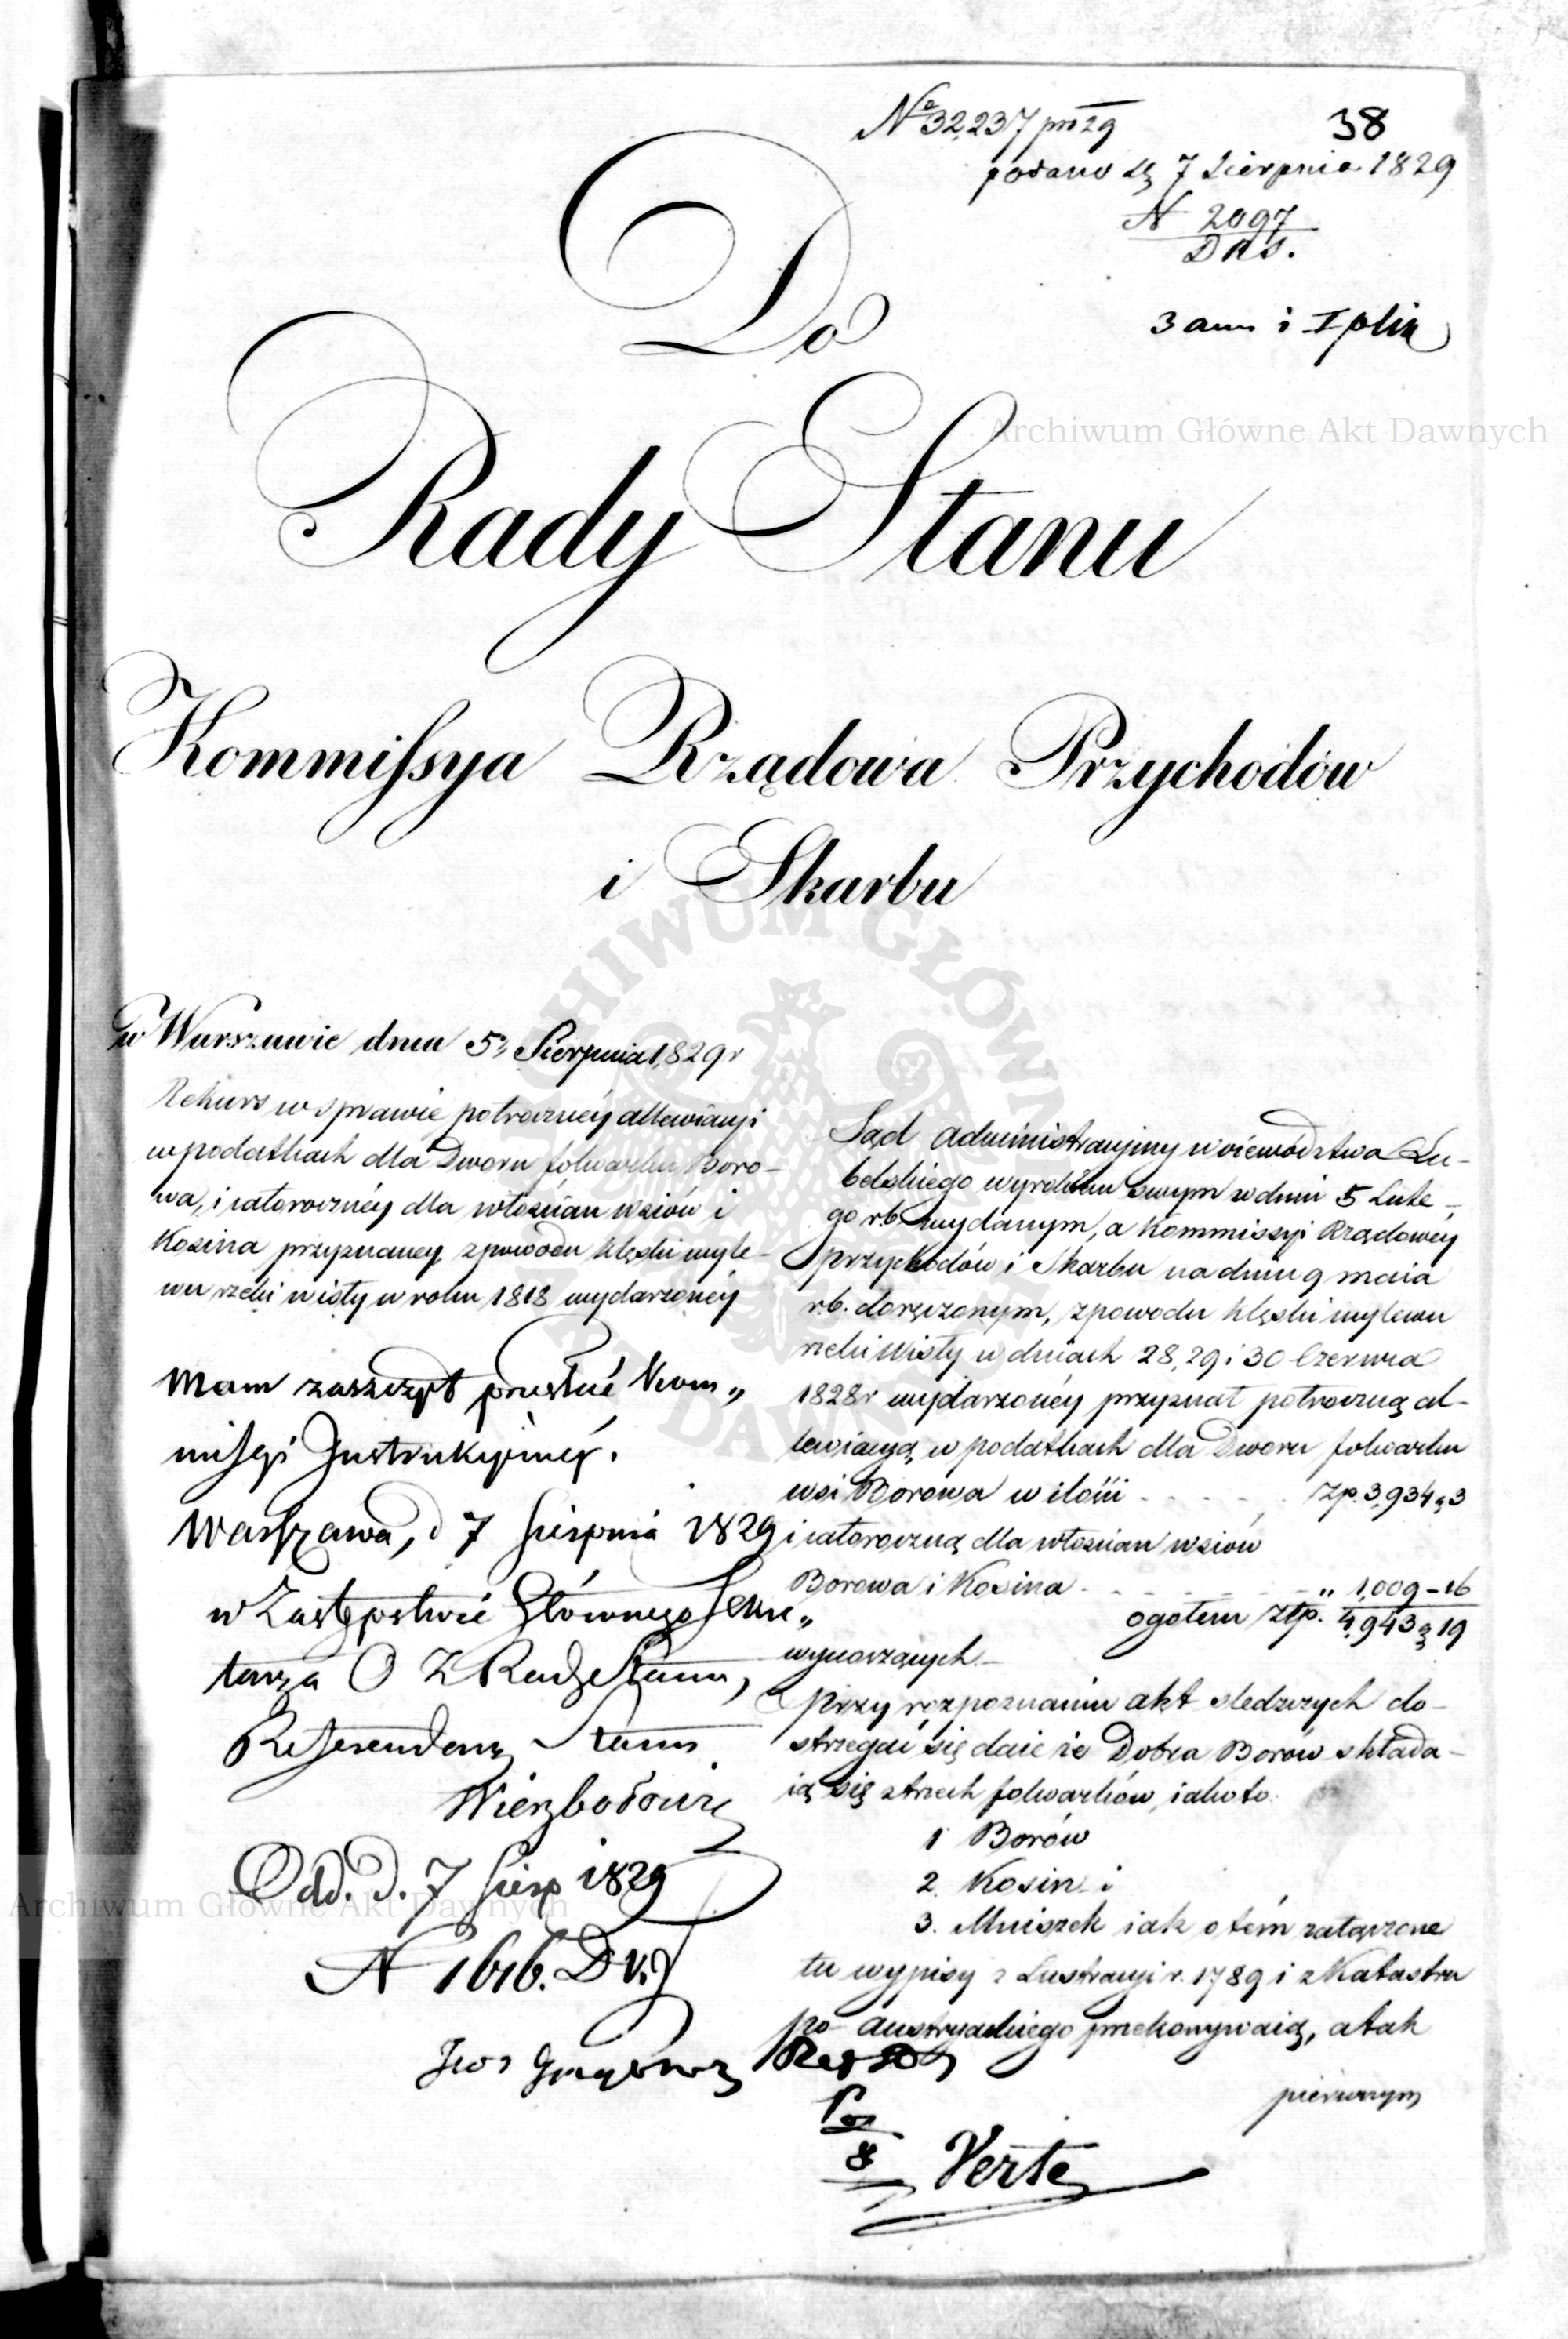 No 32,237 pro 29
38
podano d. 7 Sierpnia 1829
N 2097
DRS.
3 ann i I plik
Do
Rady Stanu
Kommissya Rządowa Przychodów
i Skarbu
w Warszawie dnia 5 Sierpnia 1829 r
Rekurs w sprawie półroczney allewiacyi
w podatkach dla Dworu folwarku Boro-
wa, i całoroczney dla włościan wsiów i
Kosina przyznaney z powodu klęski wyle-
wu rzeki Wisły w roku 1818 wydarzoney
Mam zaszczyt przesłać Kom„
missyi Instrukcyiney.
Warszawa, d 7 Sierpnia 1829
w Zastępstwie Głównego Sekre„
tarza O Z Rady Stanu,
Referendarz Stanu
Wierzbołowicz
Odd. d. 7 Sierp 1829
N 1616.
Sąd Administracyiny Woiewództwa Lu-
belskiego wyrokiem swym w dniu 5 Lute-
go rb. wydanym, a Kommissyi Rządowey
Przychodów i Skarbu na dniu 9 maia
r.b. doręczonym, z powodu klęski wylewu
rzeki Wisły w dniach 28, 29 i 30 Czerwca
1828 r wydarzoney przyznał półroczną al-
lewiacyą w podatkach dla Dworu folwarku
wsi Borowa w ilości - - - - Zp. 3,934 g 3
i całoroczną dla włościan wsiów
Borowa i Kosina - - - - - „ 1,009 - 16
ogółem Złp. 4,943 g 19
wynoszących.
Przy rozpoznaniu akt śledczych do-
strzegać się daie że Dobra Borów składa-
ią się z trzech folwarków, iakoto.
1 Borów
2. Kosin i
3. Mniszek iak o tém załączone
tu wypisy z Lustracyi r. 1789 i z Katastru
po Austryackiego przekonywaią, a tak
pierwszym
8
Verte
Archiwum Główne Akt Dawnych
Archiwum Główne Akt Dawnych
ARCHIWUM GŁÓWNE AKT DAWNYCH